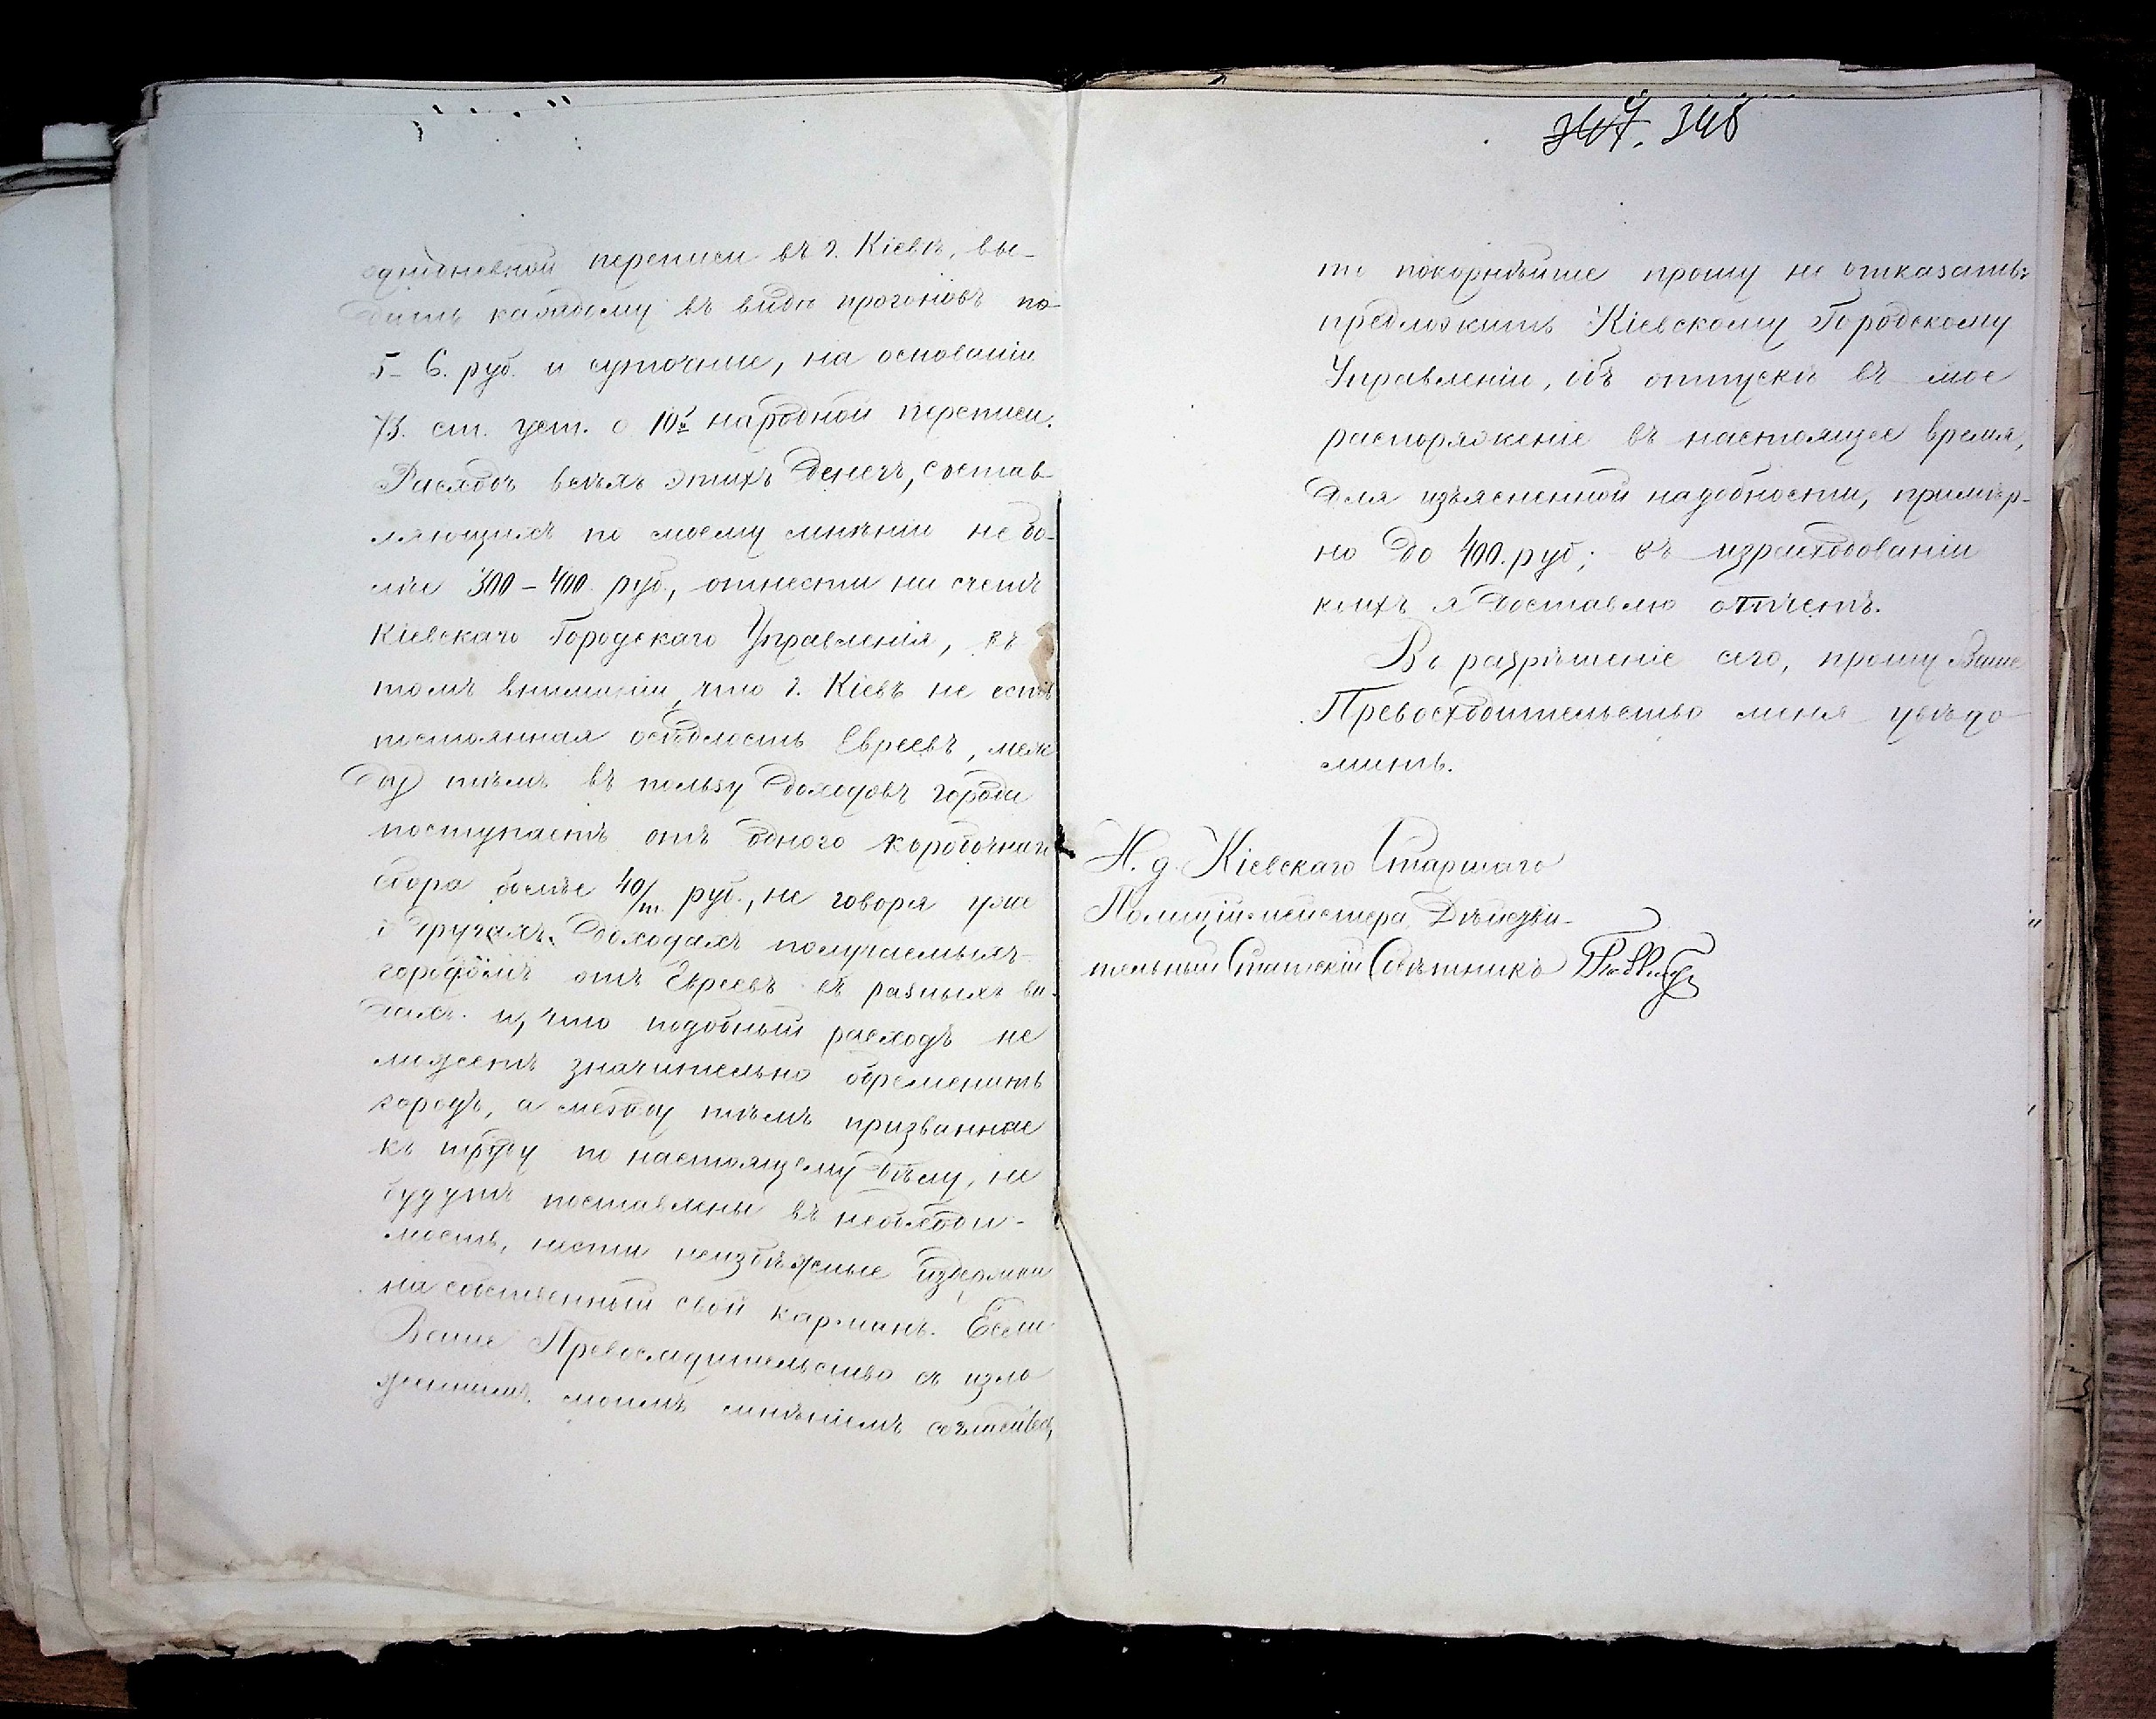 однодневной переписи въ г. Кіевѣ, вы-
дать каждому въ видѣ прогоновъ по
5-6. руб. и суточные, на основаніи
73. ст. уст. о 10й народной переписи.
Расходъ всѣхъ этихъ денегъ, состав-
ляющихъ по моему мнѣнію не бо-
лѣе 300-400. руб., отнести на счетъ
Кіевскаго Городскаго Управленія, въ
томъ вниманіи, что г. Кіевъ не есть
постоянная осѣдлость Евреевъ, меж
ду тѣмъ въ пользу доходовъ города
поступаетъ отъ одного коробочнаго
сбора болѣе 40/т. руб., не говоря уже
о другихъ доходахъ получаемыхъ
городомъ отъ Евреевъ въ разныхъ ви-
дахъ. и, что подобный расходъ не
можетъ значительно обременить
городъ, а между тѣмъ призванные
къ труду по настоящему дѣлу, не
будутъ поставлены въ необходи-
мость, нести неизбѣжные издержки
на собственный свой карманъ. Если
Ваше Превосходительство съ изло
женнымъ моимъ мнѣніемъ
347. 348
то покорнѣйше прошу не отказать:
предложить Кіевскому Городскому
Управленію, объ отпускѣ въ мое
распоряженіе въ настоящее время,
для изъясненной надобности, примѣр-
но до 400. руб; въ израсходованіи
коихъ я доставлю отчетъ.
Въ разрѣшеніе сего, прошу Ваше
Превосходительство меня увѣдо
мить.
И. д. Кіевскаго Старшаго
Полиціймейстера, Дѣйстви-
тельный Статскій Совѣтникъ